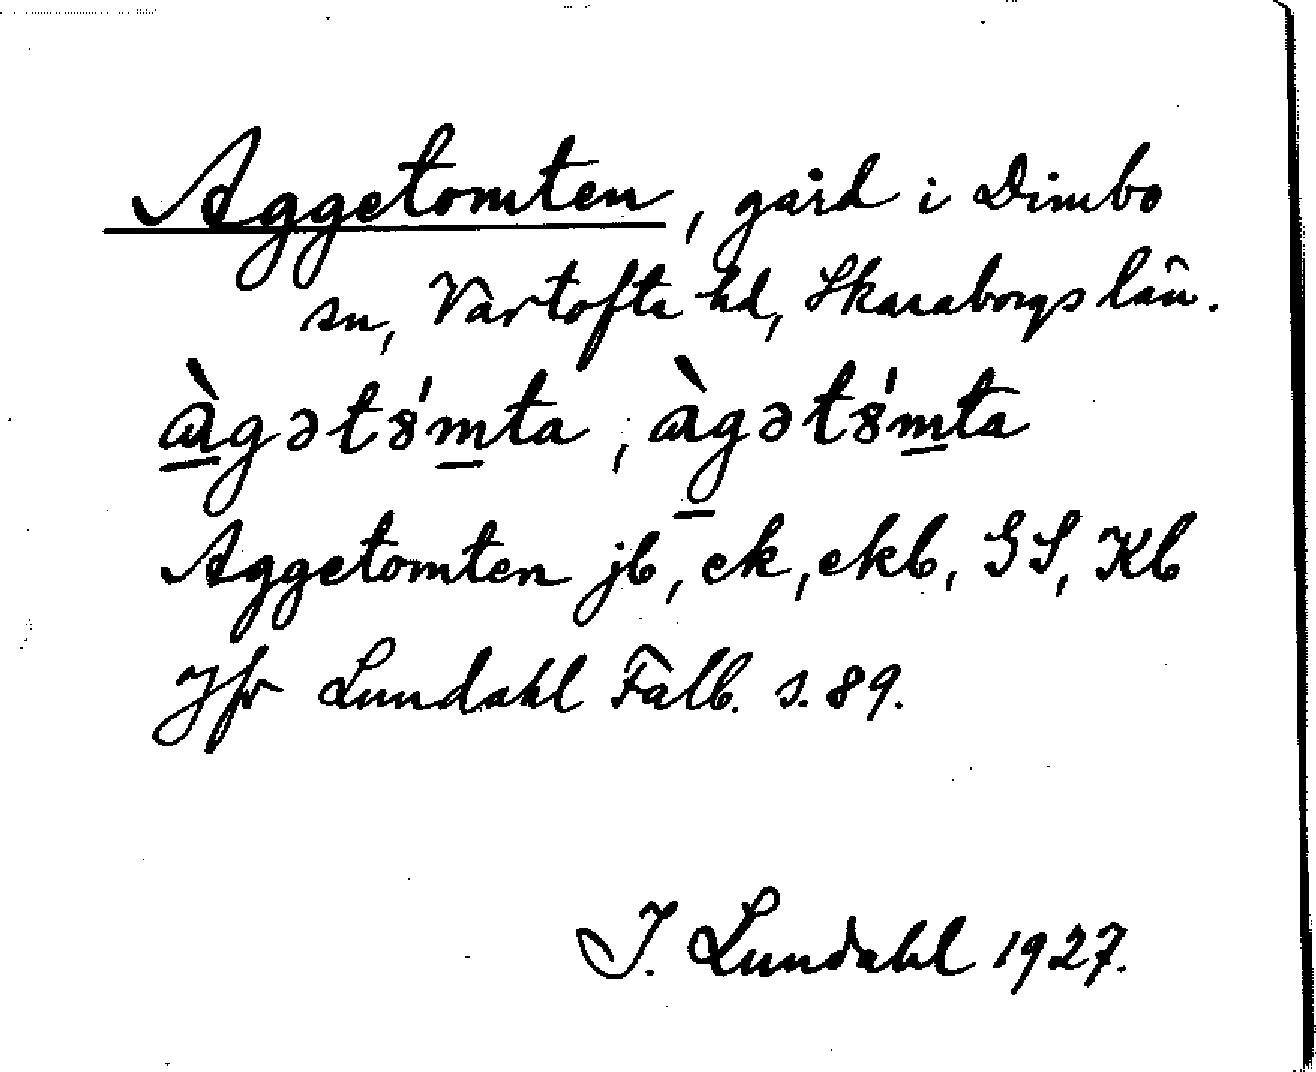 Aggetomten, gård i Dimbo
sn, Vartofta hd, Skaraborgs län.
àgətȣ'mta, àgətȣ'mta
Aggetomten jb, ek, ekb, GS, Kb
Jfr Lundahl Falb. s. 89.
I. Lundahl 1927.